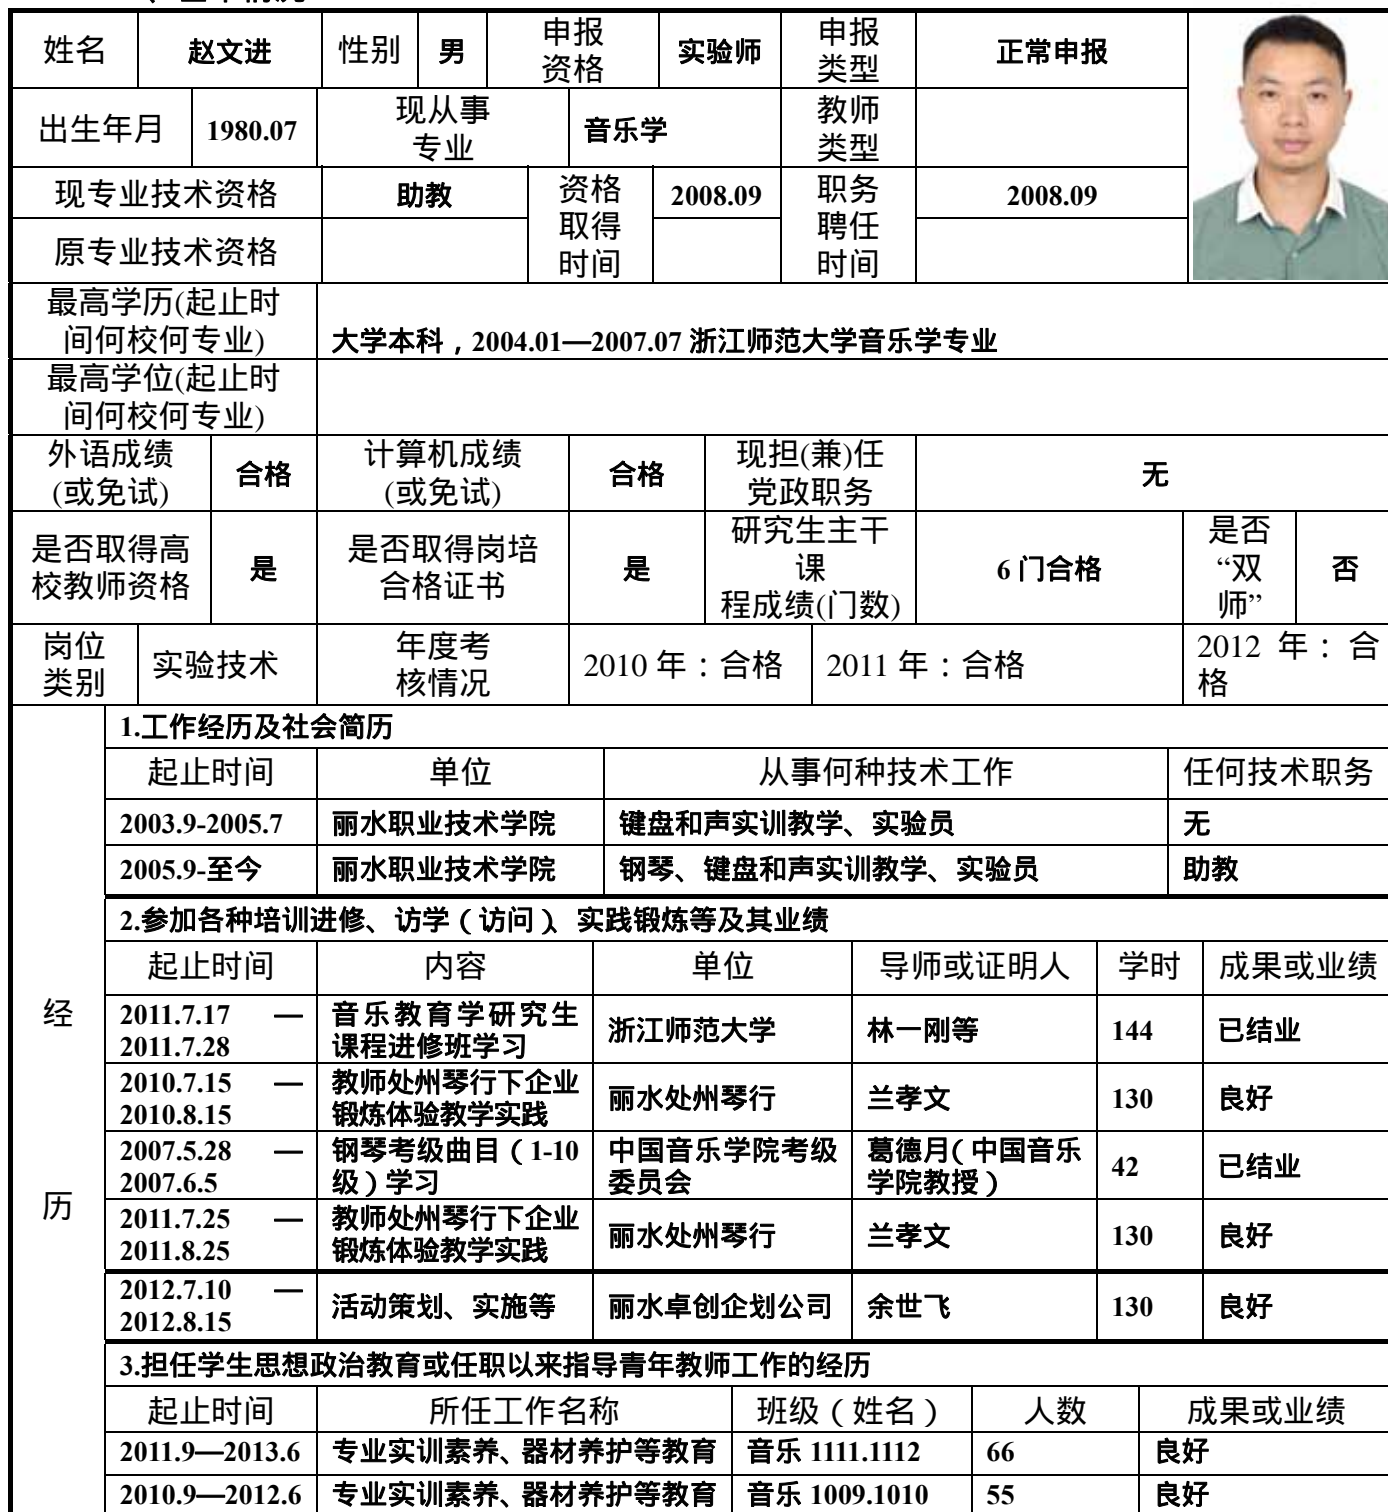 姓名 赵文进 性别 男 申报 资格 实验师 申报 类型 正常申报
出生年月 1980.07 现从事 专业 音乐学 教师 类型
现专业技术资格 助教 资格 取得 时间 2008.09 职务 聘任 时间 2008.09
原专业技术资格
最高学历(起止时
间何校何专业) 大学本科，2004.01—2007.07 浙江师范大学音乐学专业
最高学位(起止时
间何校何专业)
外语成绩
(或免试) 合格 计算机成绩
(或免试) 合格 现担(兼)任
党政职务 无
是否取得高
校教师资格 是 是否取得岗培
合格证书 是 研究生主干
课
程成绩(门数) 6 门合格 是否
“双
师” 否
岗位
类别 实验技术 年度考
核情况 2010 年：合格 2011 年：合格 2012 年：合
格
经
历
1.工作经历及社会简历
起止时间 单位 从事何种技术工作 任何技术职务
2003.9-2005.7 丽水职业技术学院 键盘和声实训教学、实验员 无
2005.9-至今 丽水职业技术学院 钢琴、键盘和声实训教学、实验员 助教
2.参加各种培训进修、访学（访问）、实践锻炼等及其业绩
起止时间 内容 单位 导师或证明人 学时 成果或业绩
2011.7.17 —
2011.7.28 音乐教育学研究生
课程进修班学习 浙江师范大学 林一刚等 144 已结业
2010.7.15 —
2010.8.15 教师处州琴行下企业
锻炼体验教学实践 丽水处州琴行 兰孝文 130 良好
2007.5.28 —
2007.6.5 钢琴考级曲目（1-10
级）学习 中国音乐学院考级
委员会 葛德月（中国音乐
学院教授） 42 已结业
2011.7.25 —
2011.8.25 教师处州琴行下企业
锻炼体验教学实践 丽水处州琴行 兰孝文 130 良好
2012.7.10 —
2012.8.15 活动策划、实施等 丽水卓创企划公司 余世飞 130 良好
3.担任学生思想政治教育或任职以来指导青年教师工作的经历
起止时间 所任工作名称 班级（姓名） 人数 成果或业绩
2011.9—2013.6 专业实训素养、器材养护等教育 音乐 1111.1112 66 良好
2010.9—2012.6 专业实训素养、器材养护等教育 音乐 1009.1010 55 良好